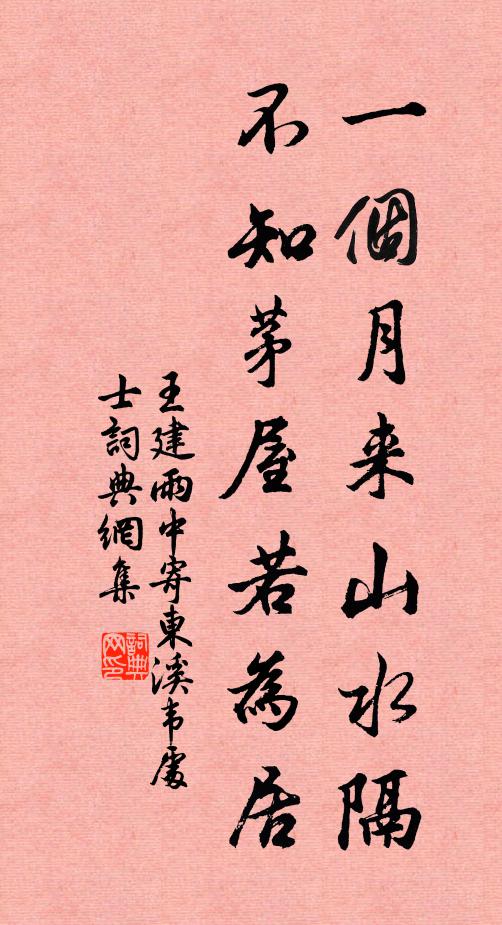 一個月来山水隔
不知茅屋若為居
王建雨中寄東溪韦處
士詞典網集
詞典网印